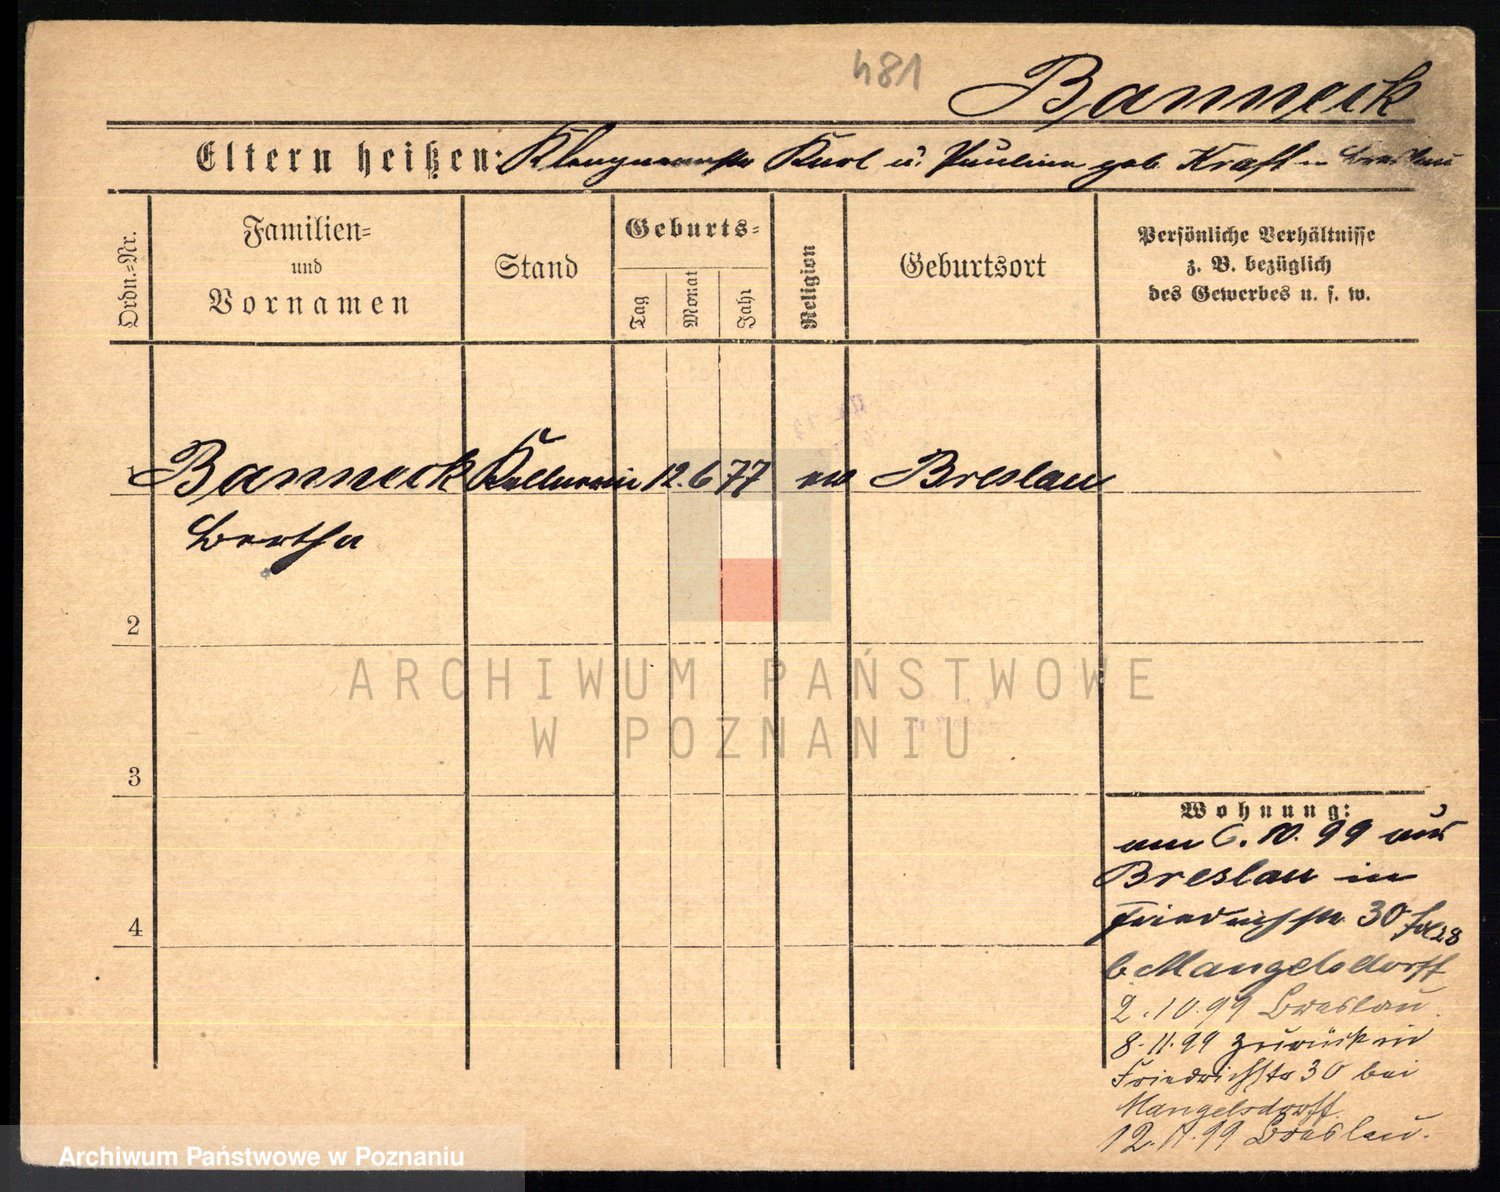 481
Banneck
Eltern heißen: Klempnermstr Karl u. Paulina geb. Kraft in Breslau
Ordn.=Nr.
Familien=
und
Vornamen
Stand
Geburts=
Tag
Monat
Jahr
Religion
Geburtsort
Persönliche Verhältnisse
z. B. bezüglich
des Gewerbes u. s. w.
1 Banneck Kellnerin 12. 6 77 ev Breslau
Bertha
2
3
4
Wohnung:
am 6. 10. 99 aus
Breslau in
Friedrichstr 30
b. Mangelsdorff
2. 10. 99 Breslau.
8. 11. 99 zurück in
Friedrichstr 30 bei
Mangelsdorff.
12. 11. 99 Breslau.
ARCHIWUM PAŃSTWOWE
W POZNANIU
Archiwum Państwowe w Poznaniu